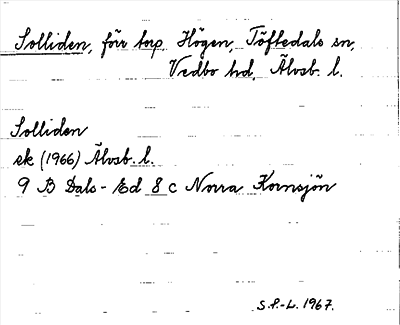 Solliden, förr torp Högen, Töftedals sn,
Vedbo hd, Älvsb. l.
Solliden
ek (1966) Älvsb. l.
9 B Dals-Ed 8 c Norra Kornsjön
S.P.-L. 1967.